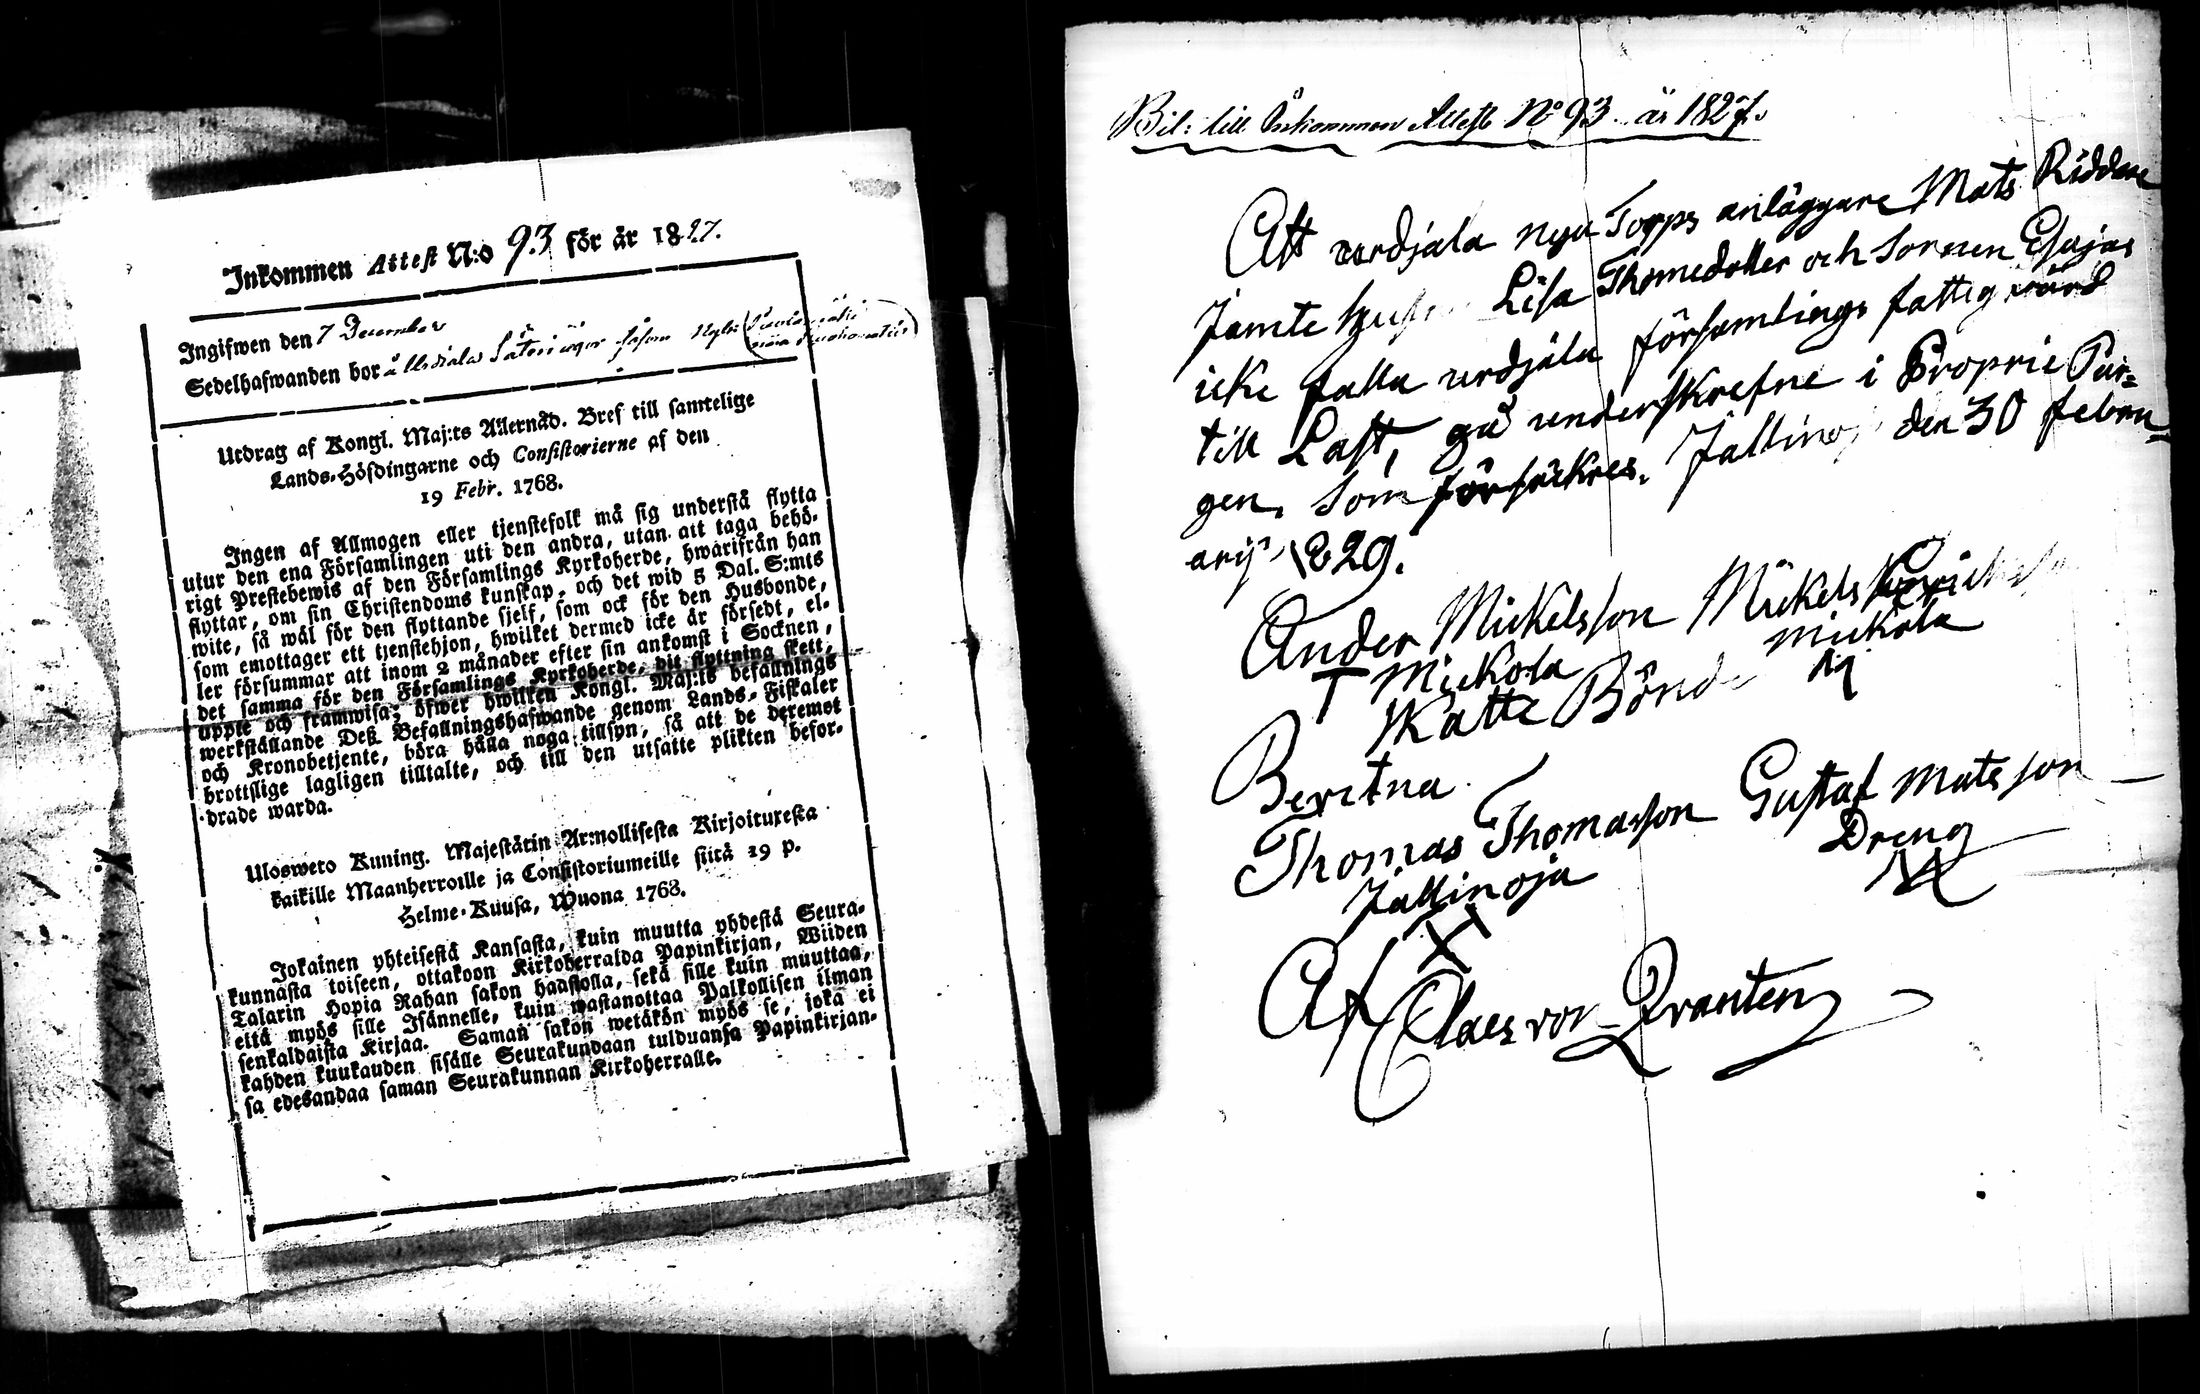 Inkommen Attest N:o 93 för år 1827.
Ingifwen den 7 December
Sedelhafwanden bor å Urdiala Säteri ägor såsom
Utdrag af Kongl. Maj:ts Allernåd. Bref till samtelige
Lands-Höfdingarne och Consistorierne af den
19 Febr. 1768.
Ingen af Allmogen eller tjenstefolk må sig understå flytta
utur den ena Församlingen uti den andra, utan att taga behö-
rigt Prestebewis af den Församlings Kyrkoherde, hwarifrån han
flyttar, om sin Christendoms kunskap, och det wid 5 Dal. S:mts
wite, så wäl för den flyttande sjelf, som ock för den Husbonde,
som emottager ett tjenstehjon, hwilket dermed icke är försedt, el-
ler försummar att inom 2 månader efter sin ankomst i Socknen,
det samma för den Församlings Kyrkoherde, dit flyttning skett,
uppte och framwisa; öfwer hwilken Kongl. Maj:ts befallnings
werkställande Deß Befallningshafwande genom Lands-Fiskaler
och Kronobetjente, böra hålla noga tillsyn, så att de deremot
brottslige lagligen tilltalte, och till den utsatte plikten befor-
drade warda.
Ulosweto Kuning. Majestätin Armollisesta Kirjoituxesta
kaikille Maanherroille ja Consistoriumeille siitä 19 p.
Helme-Kuusa, Wuona 1768.
Jokainen yhteisestä Kansasta, kuin muutta yhdestä Seura-
kunnasta toiseen, ottakoon Kirkoherralda Papinkirjan, Wiiden
Talarin Hopia Rahan sakon haastolla, sekä sille kuin muuttaa,
että myös sille Isännelle, kuin wastanottaa Palkollisen ilman
senkaldaista Kirjaa. Saman sakon wetäkön myös se, joka ei
kahden kuukauden sisälle Seurakundaan tulduansa Papinkirjan-
sa edesandaa saman Seurakunnan Kirkoherralle.
Bil: till Inkommen Attest No 93 år 1827.
Att urdjala nya Torps anläggare Mats Riddare
Jamte Lisa Thomedotter och Sonnen Esajas
icke falla urdjala församlings fattigvård
till Last, gå underskrefne i Proprie Bor-
gen, som försäkres. Jallino den 30 febru-
arij 1829.
Ander Mickelsson Mickels
T Mickola Mickola
Katte Bönde M
Beritna
Thomas Thomasson Gustaf Matsson
Jallinoja Dreng
Af Claes von Qvanten